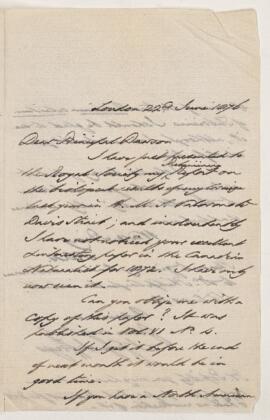 London 22nd June 1876
Dear Principal Dawson
I have just presented to
the Royal Society my Preliminary Report on
the biological results of my cruise
last year in H. M. S. Valorous to
Davis Strait; and inadvertently
I have not noticed your excellent
paper in the Canadian
Naturalist for 1872. I have only
now seen it.
Can you oblige me with a
copy of this paper? It was
published in Vol. VI No. 4.
If I get it before the end
of next month it would be in
good time.
If you have a North American